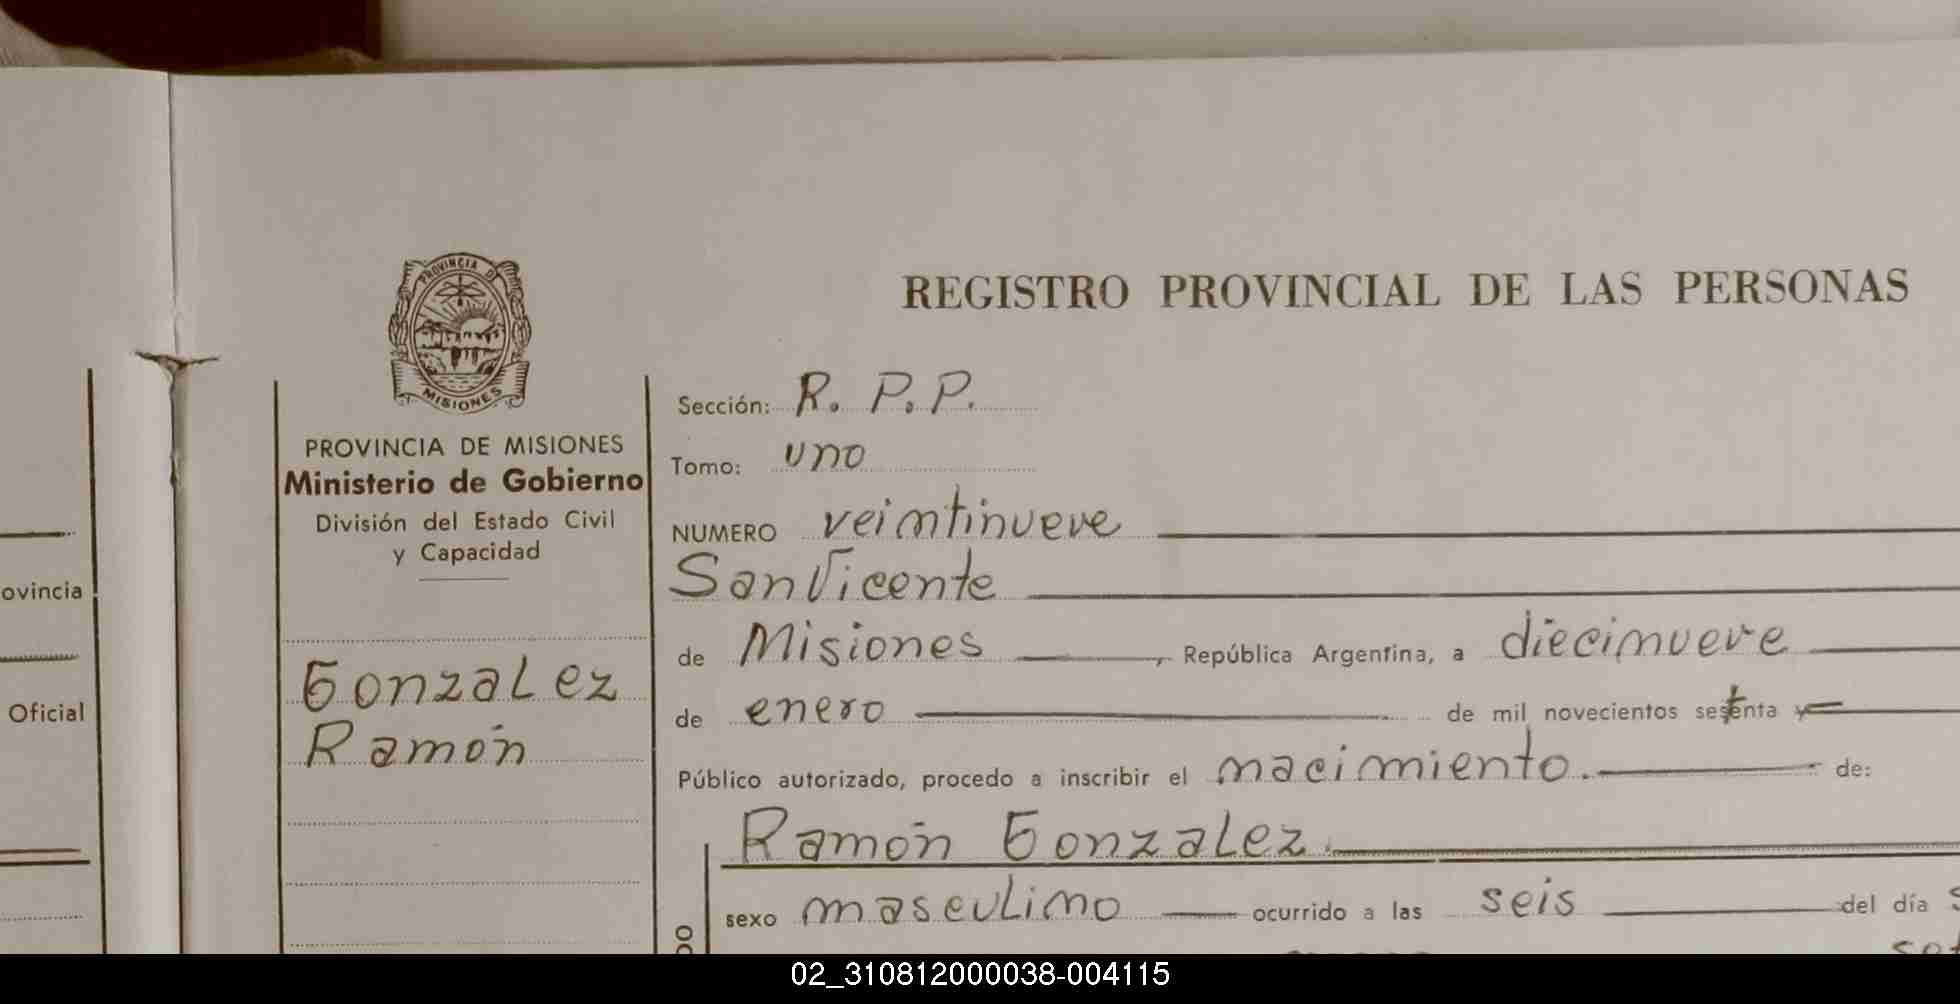 PROVINCIA DE
MISIONES
PROVINCIA DE MISIONES
Ministerio de Gobierno
División del Estado Civil
y Capacidad
Gonzalez
Ramón
ovincia
Oficial
REGISTRO PROVINCIAL DE LAS PERSONAS
Sección: R. P. P.
Tomo: uno
NUMERO veintinueve
San Vicente
de Misiones, República Argentina, a diecinueve
de enero de mil novecientos setenta y
Público autorizado, procedo a inscribir el nacimiento. de:
Ramón Gonzalez.
sexo masculino ocurrido a las seis del día
02_310812000038-004115